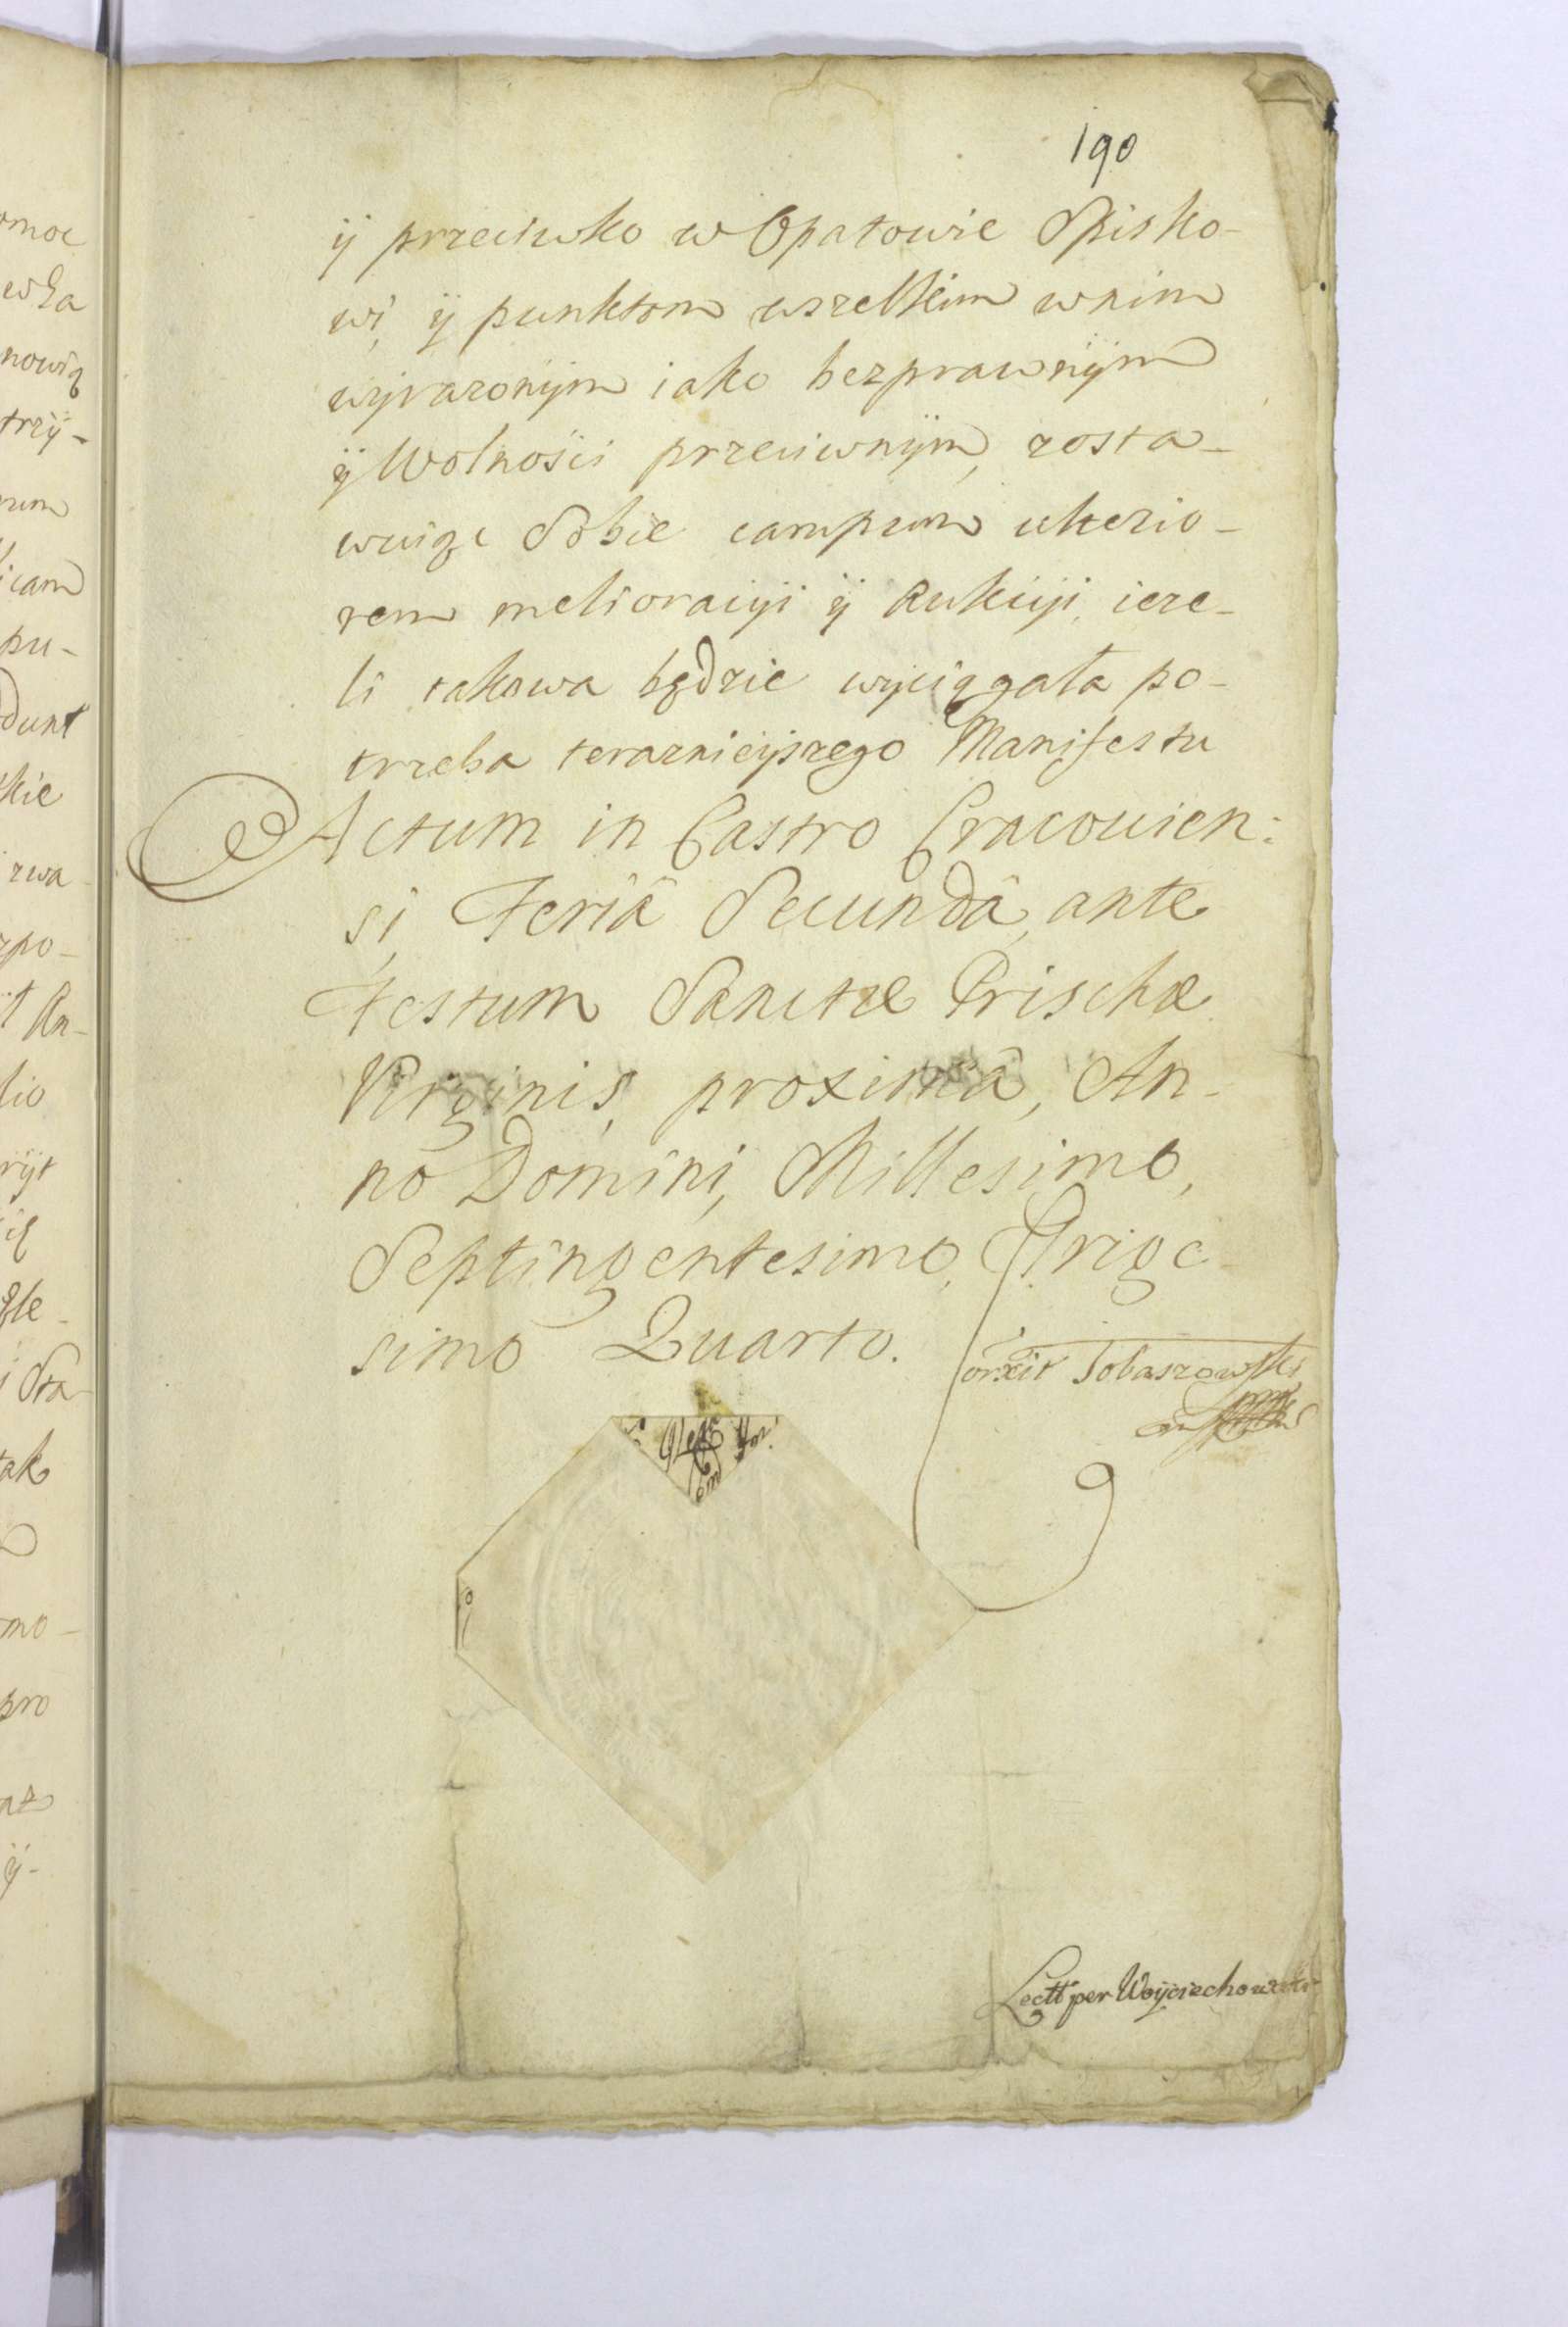 190
ÿ przeciwko w Opatowie Spisko-
wi, ÿ punktom wszelkim wnim
wÿrazonÿm iako bezprawnÿm
ÿ Wolności przeciwnÿm, zosta-
wuiąc Sobie campum ulterio-
rem melioracÿi ÿ Aukcÿi, ieze-
li takowa będzie wÿciągała po-
trzeba teraznieÿszego Manifestu
Actum in Castro Cracovien:
si, Feriâ Secundâ, ante
Festum Sanctæ Prischæ
Virginis, proximâ, An-
no Domini, Millesimo,
Septingentesimo, Trige-
simo Quarto.
Corrxit Tobaszowski
Lectt per Woÿciechowski
omoc
ewża
nowią
trzÿ-
rum
icam
pu-
dunt
skie
zwa
zpo-
t An-
lio
rÿt
ią
gle-
i Sta
tak
mo-
pro
ÿ-